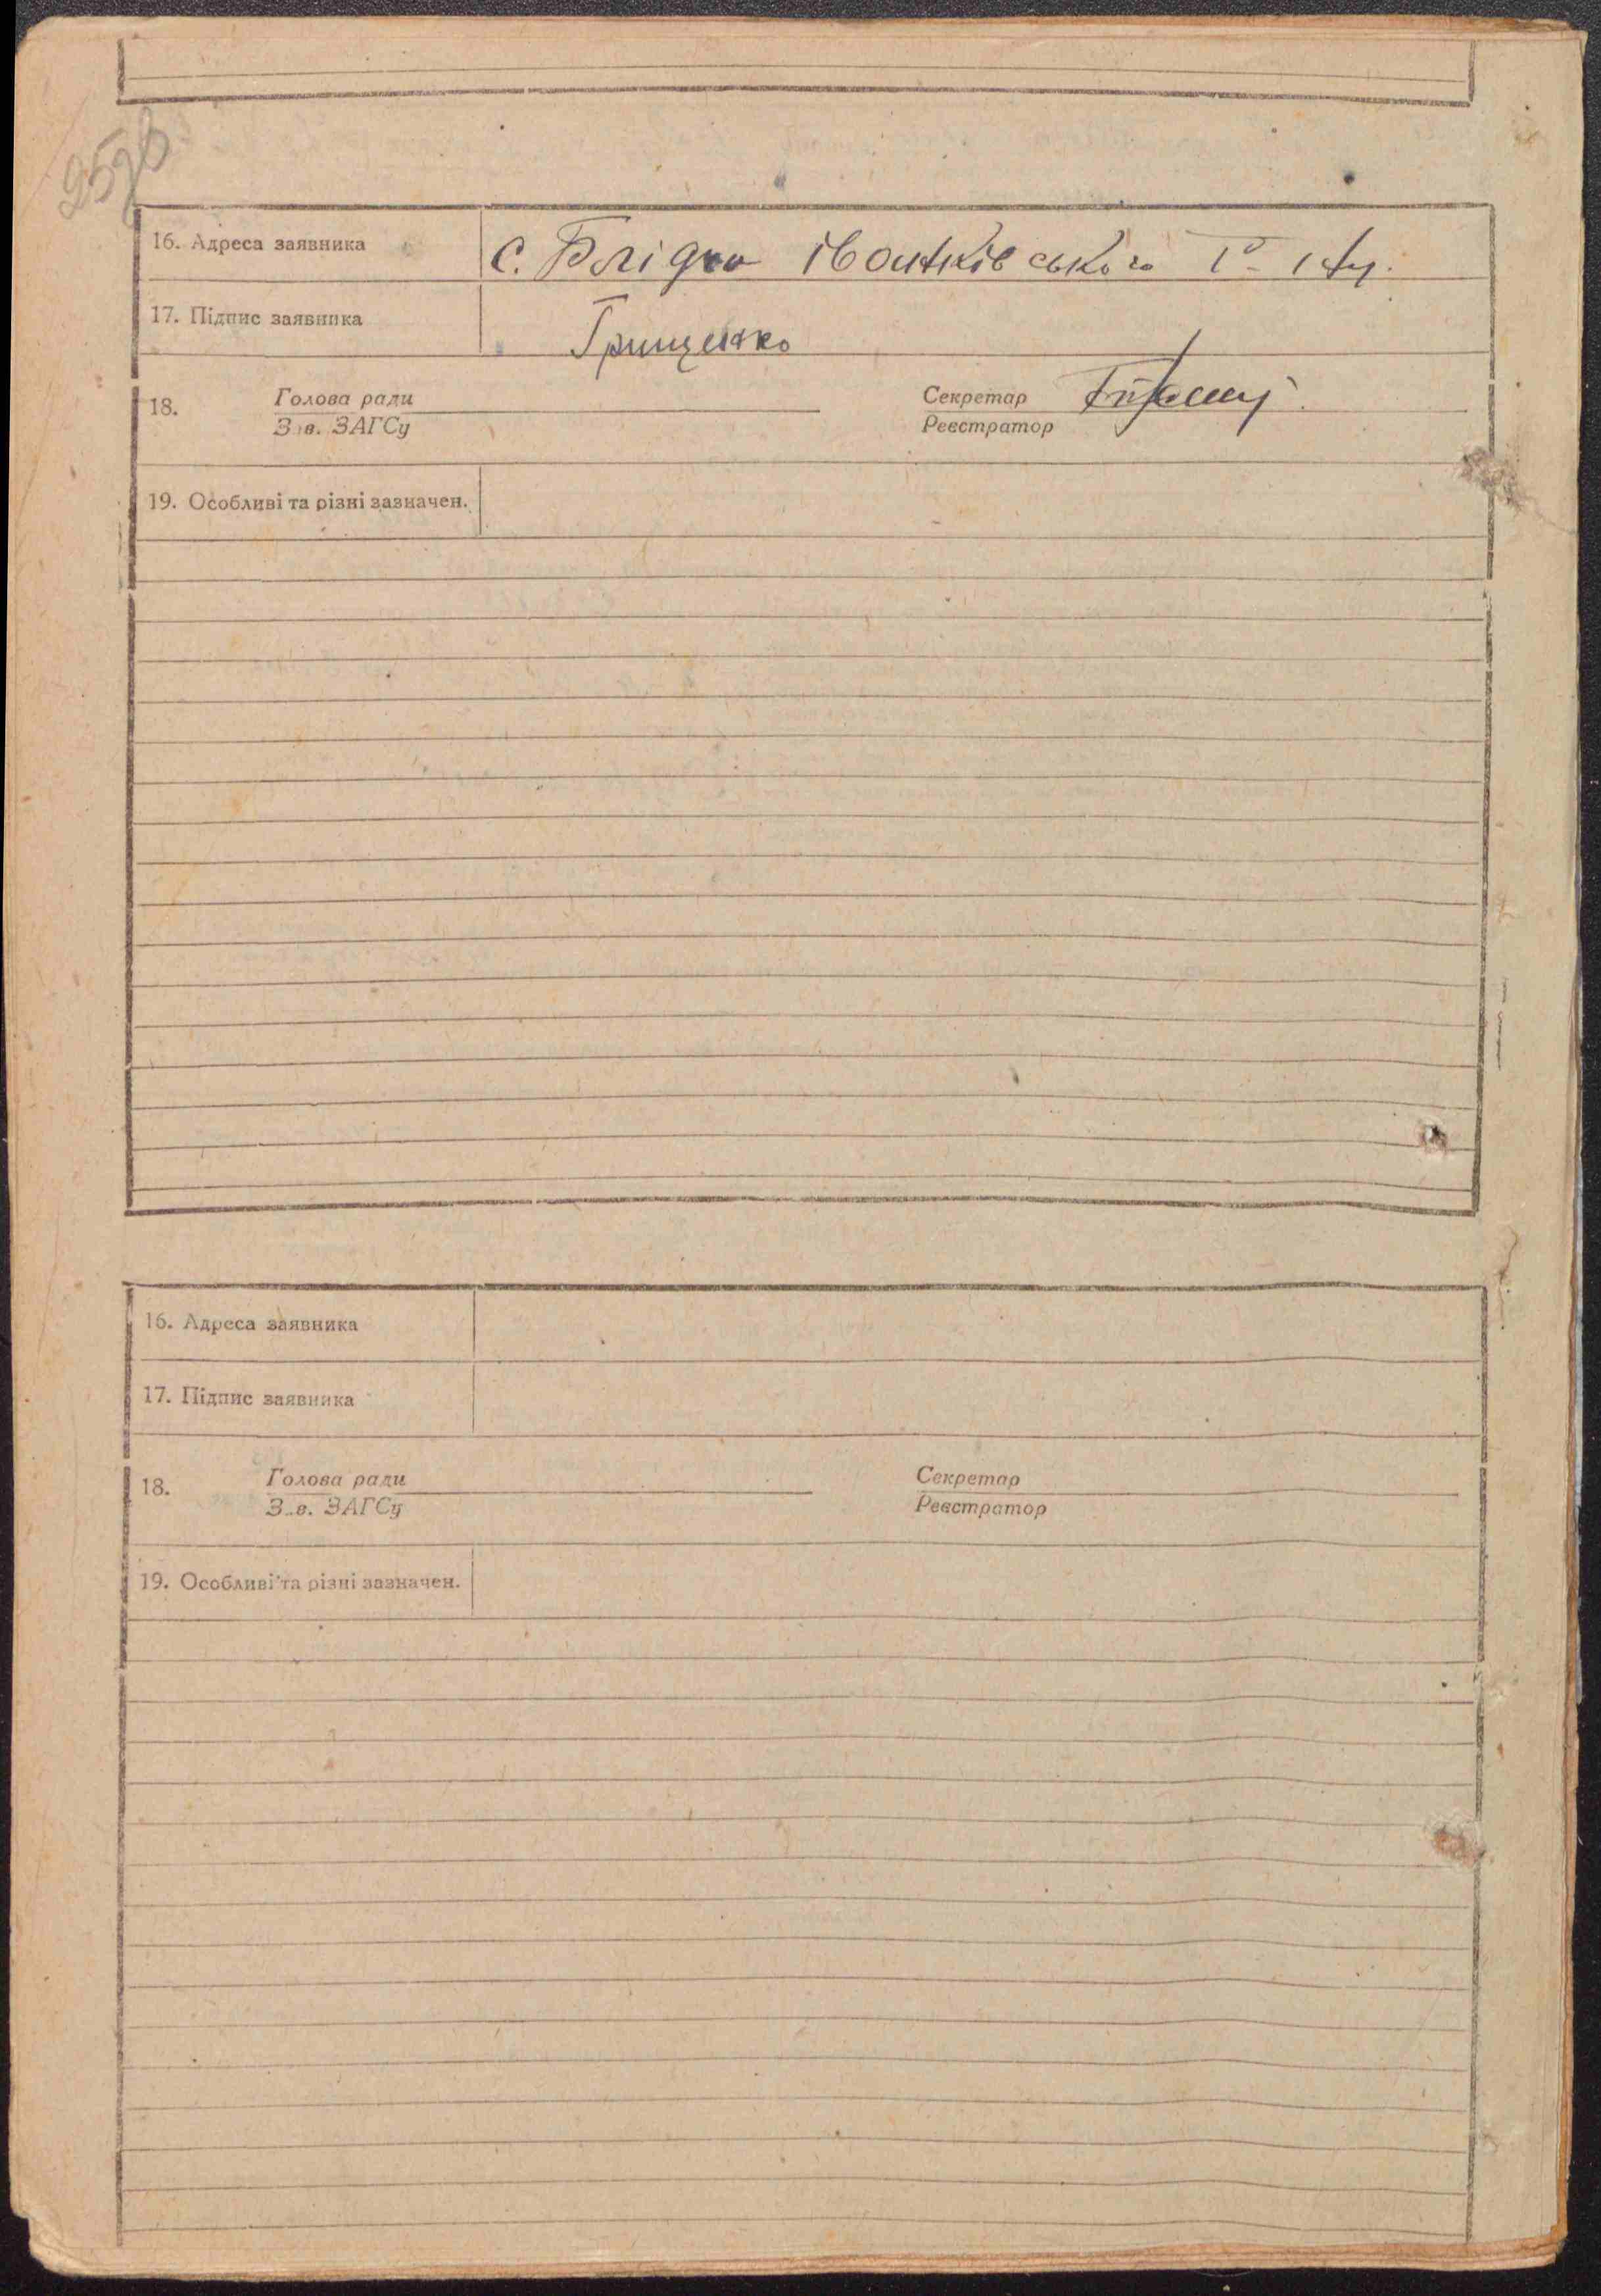 16. Адреса заявника с. Блідча іванківського
17. Підпис заявника Грищенко
18. Голова ради Секретар
Зав. ЗАГСу Реєстратор
19. Особливі та різні зазначен.
16. Адреса заявника
17. Підпис заявника
18. Голова ради Секретар
Зав. ЗАГСу Реєстратор
19. Особливі та різні зазначен.